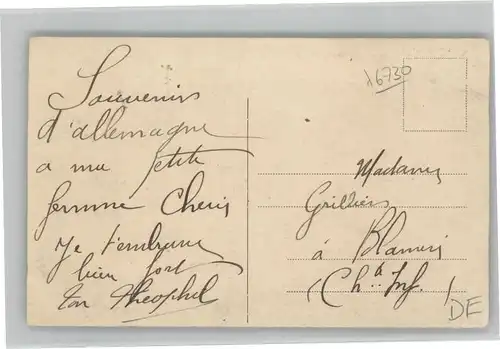 Souvenirs
d'allemagne
a ma petite
femme Cheris
Je t'embrasse
bien fort
ton Théophil
16730
Madame
Grilliers
à
(Ch.te Inf.)
DE